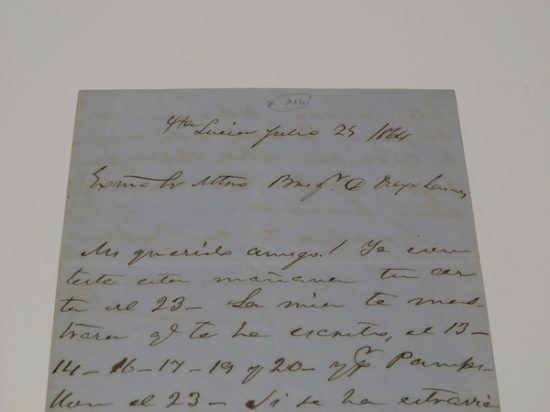 116
Sta Lucia Julio 25 1864
Exmo Sr Mtro
Mi querido amigo! Ya con
testé esta mañana tu car
ta del 23 - La mia te mos-
trara qe te he escrito, el 13 -
14 - 16 - 17 - 19 y 20 - y pr Pamp-
llon el 23 - Si se ha extravia